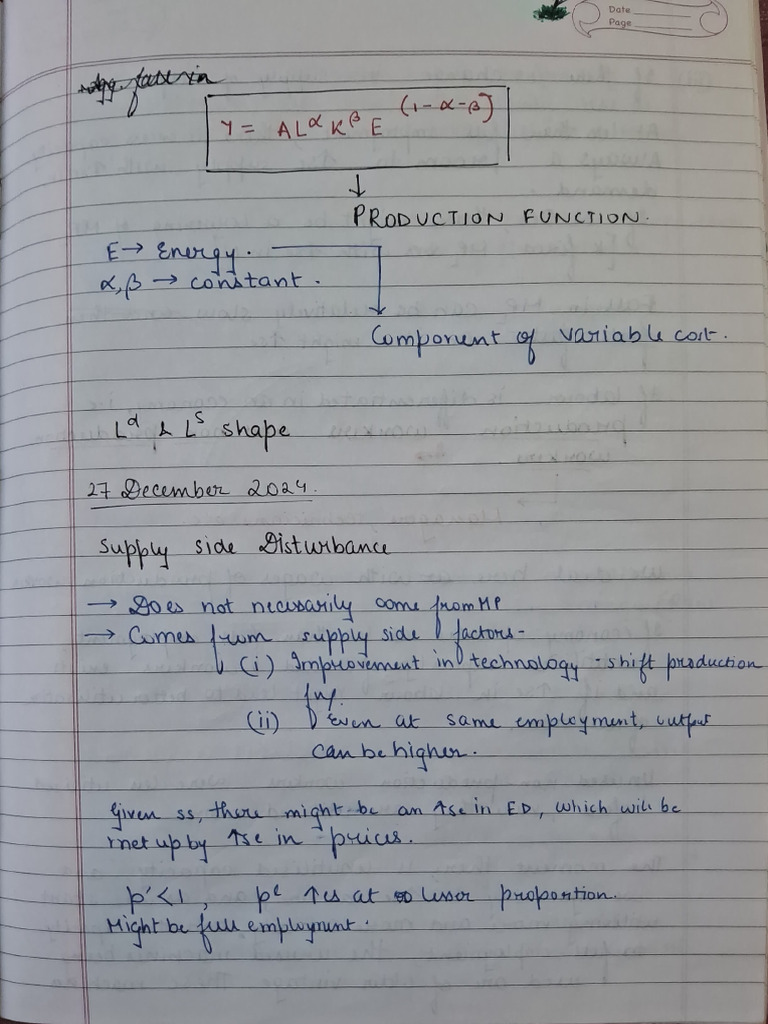 Date
Page
Y = AL^α K^β E^(1-α-β)
↓
PRODUCTION FUNCTION.
E → Energy.
α, β → constant.
Component of variable cost.
L^d & L^s shape
27 December 2024.
Supply side Disturbance
→ Does not necessarily come from MP
→ Comes from supply side factors-
(i) Improvement in technology - shift production
fn/.
(ii) Even at same employment, output
can be higher.
Given ss, there might be an ↑se in ED, which will be
met up by ↑se in prices.
p'<1, p^e ↑es at lesser proportion.
Might be full employment.